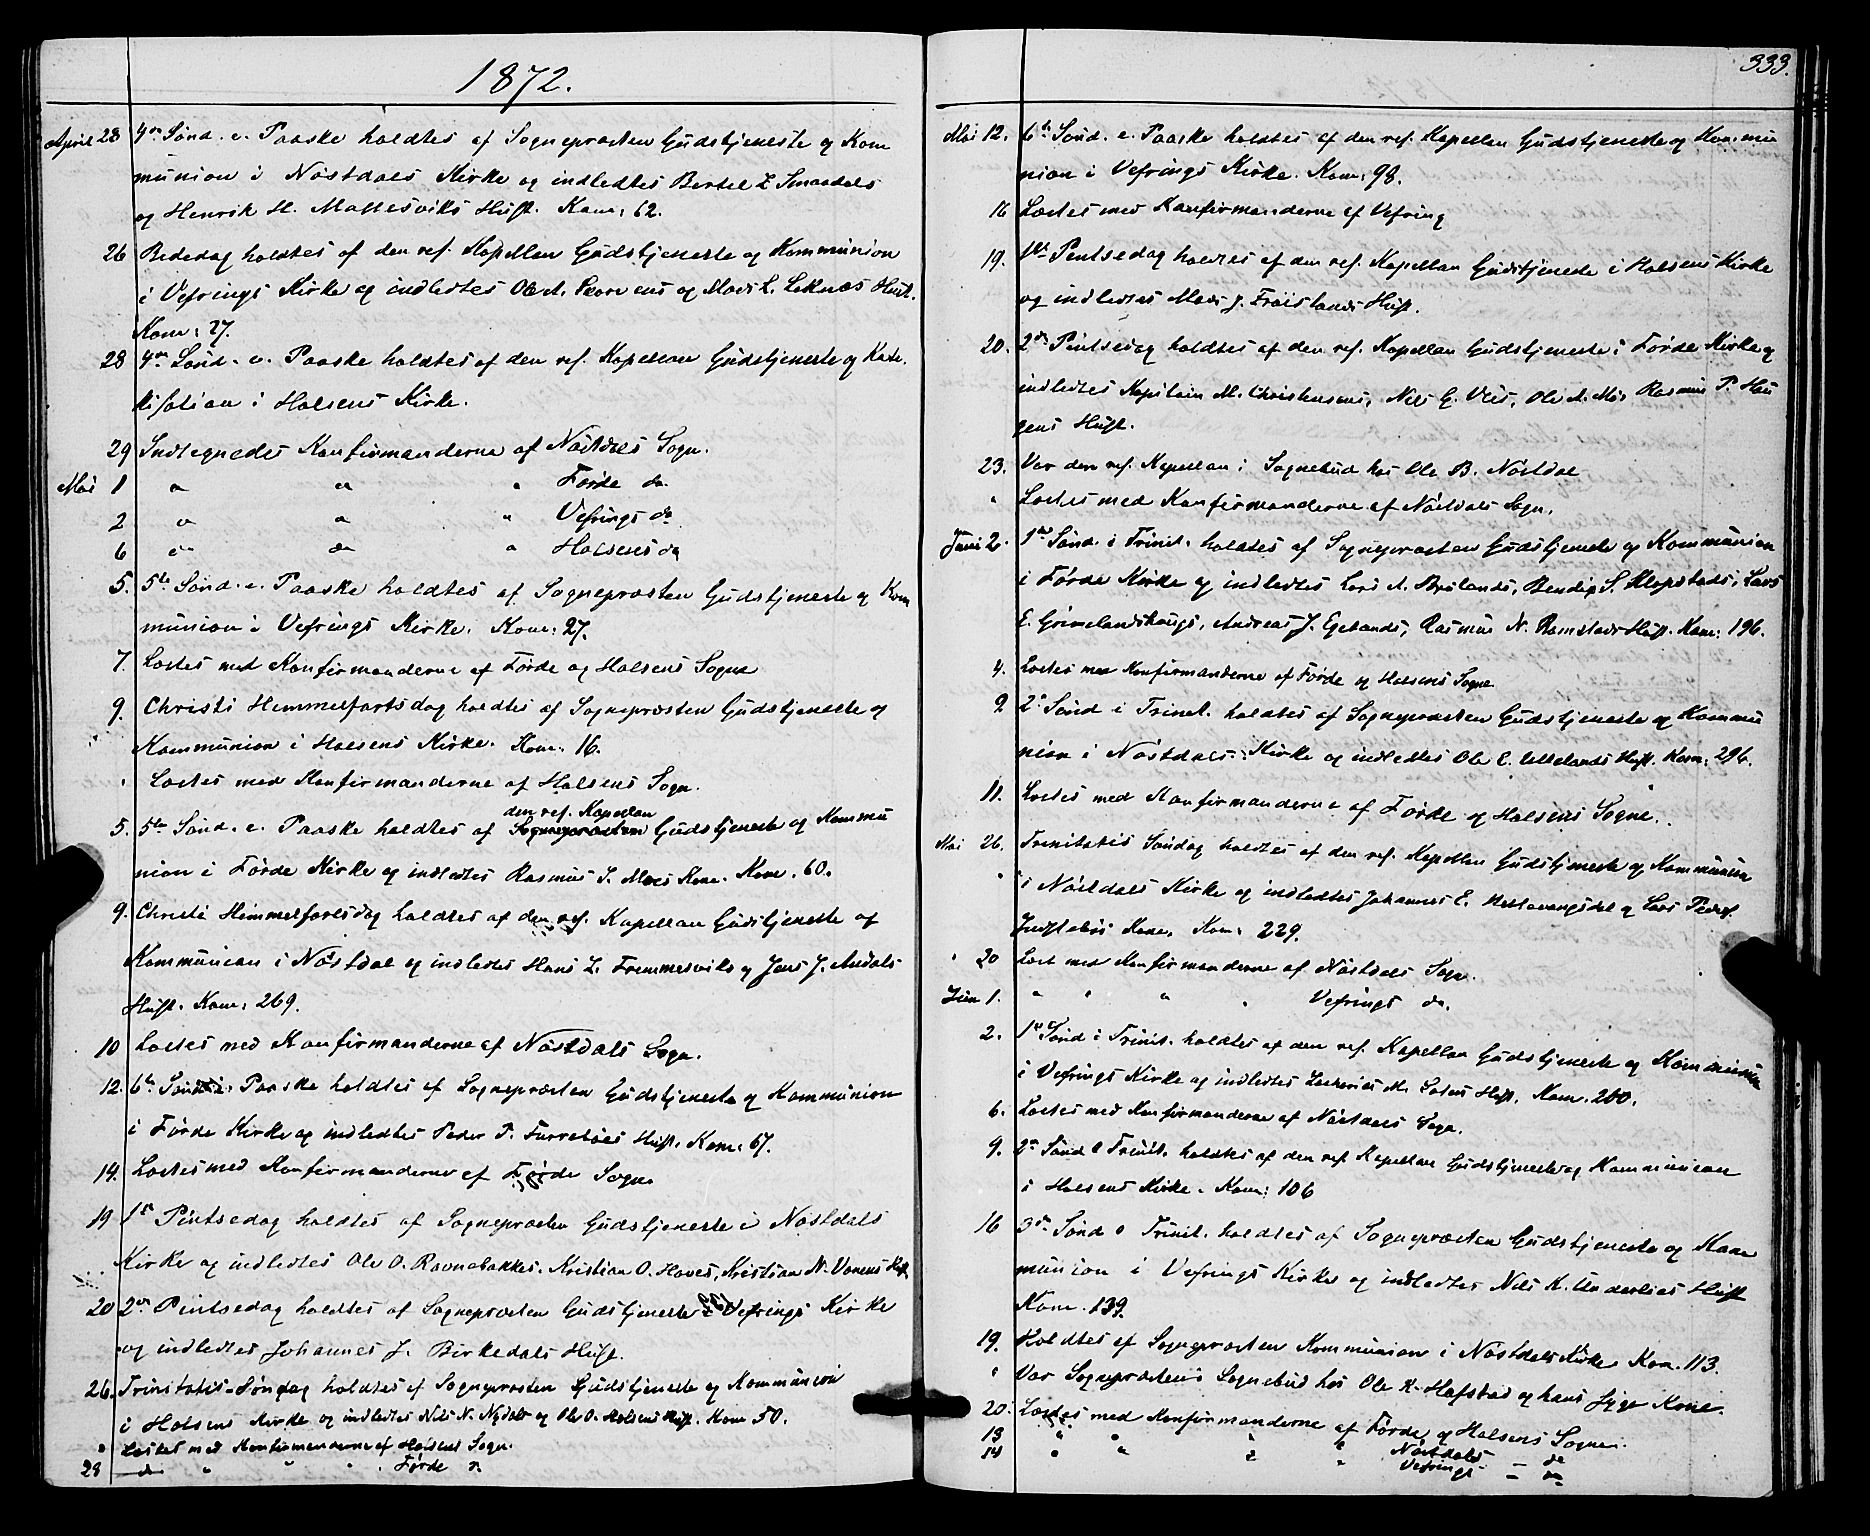 1872.
April 28 4de Sönd. e. Paaske holdtes af Sognepræsten Gudstjeneste og Kom
munion i Nöstdals Kirke og indledtes Bertel L. Smaadals
og Henrik H. Hust. Kom: 62.
26 Bededag holdtes af den res. Kapellan Gudstjeneste og Kommunion
i Vefrings Kirke og indledtes Ole A. og Mads L. Leknæs Hust.
Kom: 27.
28 4de Sönd. e. Paaske holdtes af den res. Kapellan Gudstjeneste og Kate
kisation i Holsens Kirke.
29 Indtegnedes Konfirmanderne af Nöstdals Sogn.
Mai 1 " " " Förde do.
2 " " " Vefrings do
6 do do " Holsens do
5. 5te Sönd. e. Paaske holdtes af Sognepræsten Gudstjeneste og Kom
munion i Vefrings Kirke. Kom: 27.
7. Læstes med Konfirmanderne af Förde og Holsens Sogne
9. Christi Himmelfartsdag holdtes af Sognepræsten Gudstjeneste og
Kommunion i Holsens Kirke. Kom: 16.
" Læstes med Konfirmanderne af Holsens Sogn.
den res. Kapellan
5. 5te Sönd. e. Paaske holdtes af Sognepræsten Gudstjeneste og Kommu
nion i Förde Kirke og indledtes Rasmus S. Moes Kone. Kom. 60.
9. Christi Himmelfartsdag holdtes af den res. Kapellan Gudstjeneste og
Kommunion i Nöstdal og indledtes Hans L. Fremmersviks og Jens J. Andals
Hust. Kom: 269.
10 Læstes med Konfirmanderne af Nöstdals Sogn.
12. 6te Sönd. e. Paaske holdtes af Sognepræsten Gudstjeneste og Kommunion
i Förde Kirke og indledtes Peder P. Farsetöes Hust. Kom: 67.
14. Læstes med Konfirmanderne af Förde Sogn.
19 1ste Pintsedag holdtes af Sognepræsten Gudstjeneste i Nöstdals
Kirke og indledtes Ole O. Ravnebakkes, Kristian O. Hoves, Kristian N. Vonens Hust.
20 2den Pintsedag holdtes af Sognepræsten Gudstjeneste i Vefrings Kirke
og indledtes Johannes J. Birkedals Hust.
26. Trinitatis Söndag holdtes af Sognepræsten Gudstjeneste og Kommunion
i Holsens Kirke og indledtes Nils N. og Ole O. Holsens Hust. Kom 50.
" Læstes med Konfirmanderne af Holsens Sogn.
28 do " " " Förde
333.
Mai 12. 6te Sönd. e. Paaske holdtes af den res. Kapellan Gudstjeneste og Kommu
nion i Vefrings Kirke. Kom: 98.
16 Læstes med Konfirmanderne af Vefring
19. 1ste Pintsedag holdtes af den res. Kapellan Gudstjeneste i Holsens Kirke
og indledtes Mads J. Fröislands Hust.
20. 2den Pintsedag holdtes af den res. Kapellan Gudstjeneste i Förde Kirke og
indledtes Kapitain M. Christensens, Nils G. Ole A. Mo, Rasmus P. Hau
gens Hust.
23. Var den res. Kapellan i Sognebud hos Ole B. Nöstdal
" Læstes med Konfirmanderne af Nöstdals Sogn.
Juni 2. 1ste Sönd. i Trinit. holdtes af Sognepræsten Gudstjeneste og Kommunion
i Förde Kirke og indledtes Lars A. Brulands, Bendix S. Klopstads, Lars
E. Grimelandshaugs, Andreas J. Egelands, Rasmus N. Ramstads Hust. Kom: 196.
4. Læstes med Konfirmanderne af Förde og Holsens Sogne
9 2. Sönd i Trinit. holdtes af Sognepræsten Gudstjeneste og Kommu
nion i Nöstdals Kirke og indledtes Ole E. Hust. Kom: 296.
11. Læstes med Konfirmanderne af Förde og Holsens Sogne.
Mai 26. Trinitatis Söndag holdtes af den res. Kapellan Gudstjeneste og Kommunion
" i Nöstdals Kirke og indledtes Johannes E. og Lars Peders.
Kone. Kom: 229.
" 30 Læst med Konfirmanderne af Nöstdals Sogn.
Juni 1. " " " " Vefrings do.
2. 1ste Sönd i Trinit. holdtes af den res. Kapellan Gudstjeneste og Kommunion
i Vefrings Kirke og indledtes Zacharias M. Hust. Kom. 200.
6. Læstes med Konfirmanderne af Nöstdals Sogn.
9. 2den Sönd e Trinit. holdtes af den res. Kapellan Gudstjeneste og Kommunion
i Holsens Kirke. Kom: 106
16 3de Sönd e Trinit. holdtes af Sognepræsten Gudstjeneste og Kom
munion i Vefrings Kirke og indledtes Nils K. Underlies Hust
Kom. 139.
19. Holdtes af Sognepræsten Kommunion i Nöstdals Kirke Kom. 113.
" Var Sognepræsten i Sognebud hos Ole R. Hafstad og hans syge Kone.
20. Læstes med Konfirmanderne af Förde og Holsens Sogne.
13 " " " " Nöstdals do
14 " " " " Vefrings — do